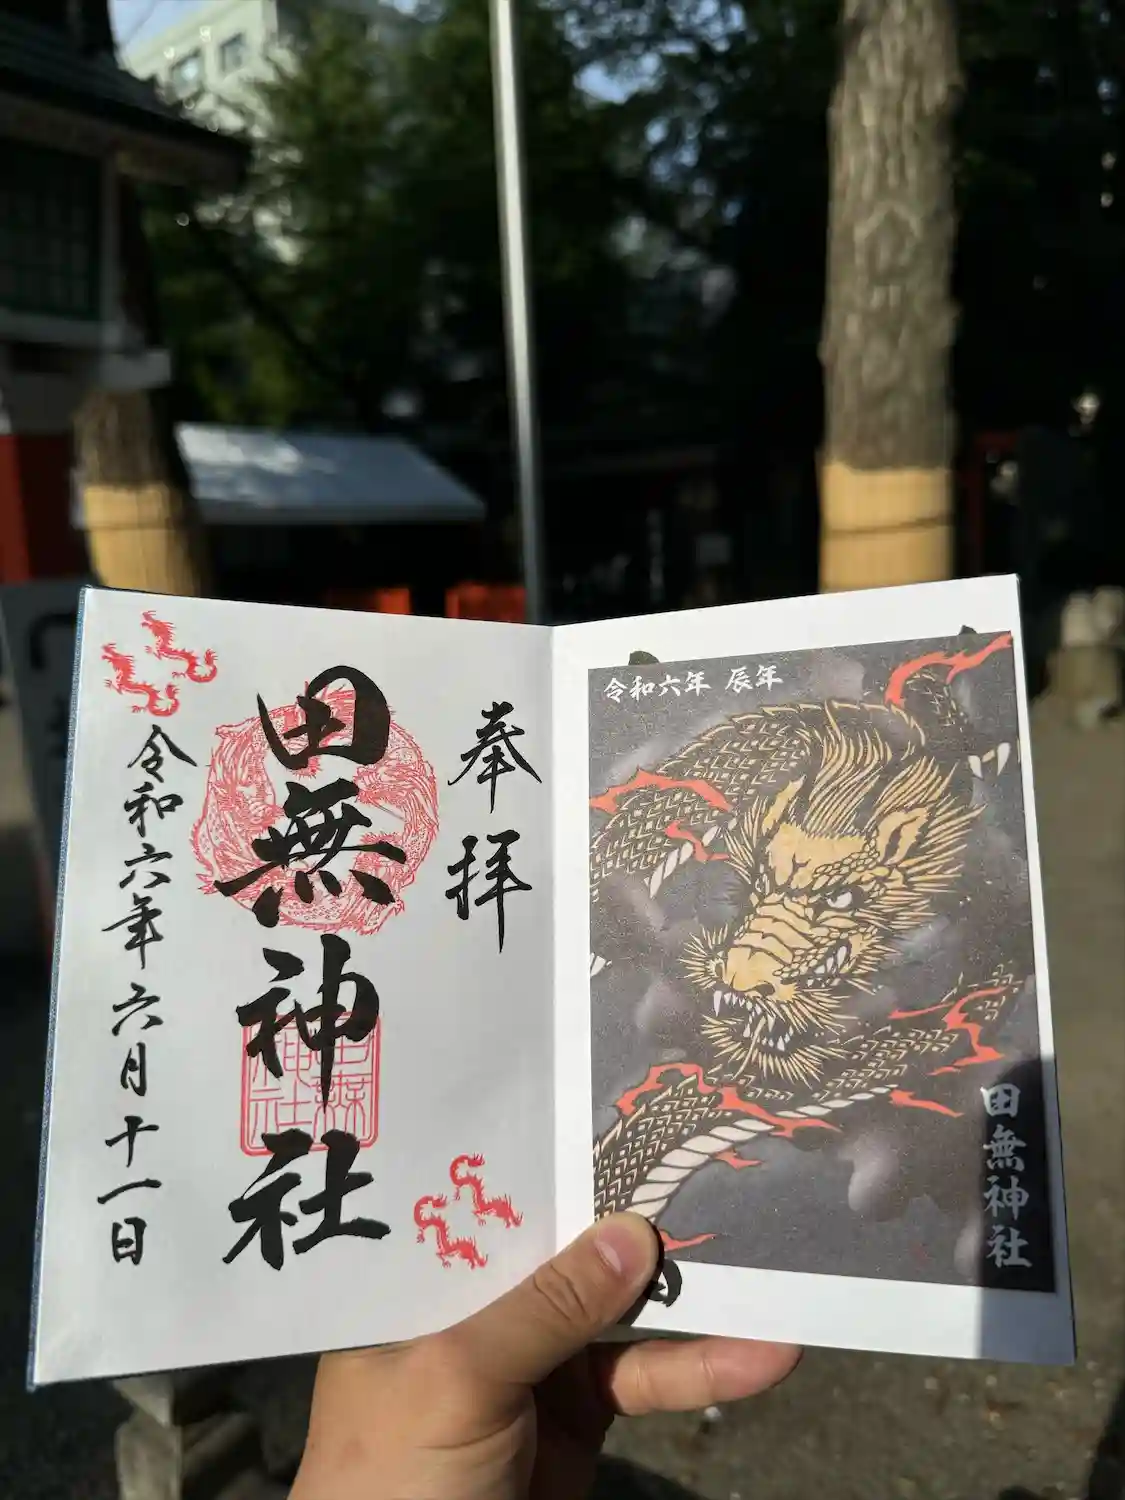 奉拝
田無神社
令和六年六月十一日
令和六年 辰年
田無神社